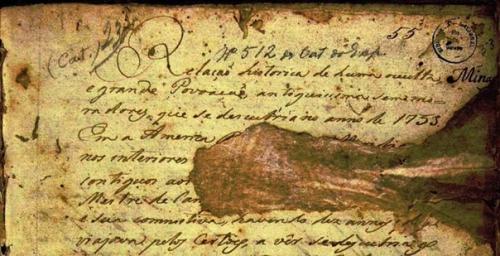 55
(Cat.)
Nº 512 do Cat. do Exp.
Relaçaõ historica de huma occulta,
Mina
e grande Povoaçaõ antiquissima sem mo-
radores, que se descubrio no anno de 1753
Em a America
nos interiores
contiguos aos
Mestre de
e sua comitiva, havendo dez annos, que
viajava pelos Certões, a vêr se descubria as